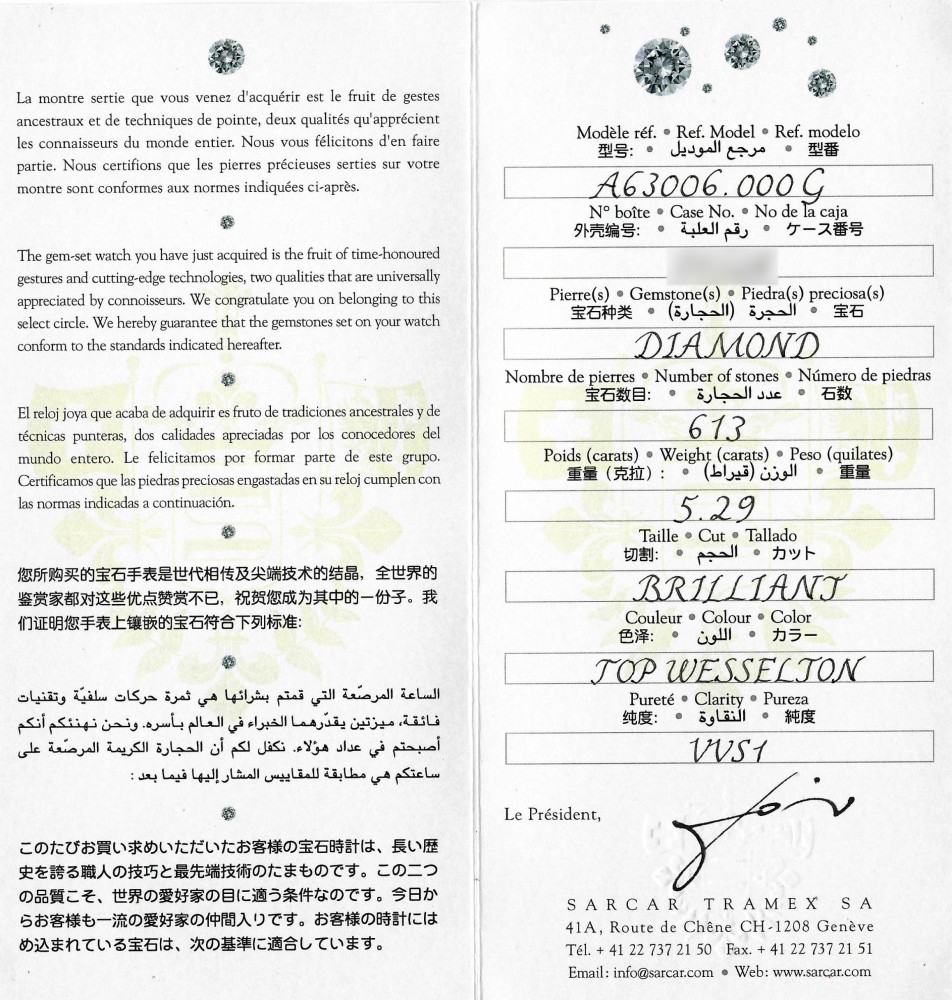 La montre sertie que vous venez d'acquérir est le fruit de gestes
ancestraux et de techniques de pointe, deux qualités qu'apprécient
les connaisseurs du monde entier. Nous vous félicitons d'en faire
partie. Nous certifions que les pierres précieuses serties sur votre
montre sont conformes aux normes indiquées ci-après.
The gem-set watch you have just acquired is the fruit of time-honoured
gestures and cutting-edge technologies, two qualities that are universally
appreciated by connoisseurs. We congratulate you on belonging to this
select circle. We hereby guarantee that the gemstones set on your watch
conform to the standards indicated hereafter.
El reloj joya que acaba de adquirir es fruto de tradiciones ancestrales y de
técnicas punteras, dos calidades apreciadas por los conocedores del
mundo entero. Le felicitamos por formar parte de este grupo.
Certificamos que las piedras preciosas engastadas en su reloj cumplen con
las normas indicadas a continuación.
您所购买的宝石手表是世代相传及尖端技术的结晶，全世界的
鉴赏家都对这些优点赞赏不已，祝贺您成为其中的一份子。我
们证明您手表上镶嵌的宝石符合下列标准:
الساعة المرصّعة التي قمتم بشرائها هي ثمرة حركات سلفيّة وتقنيات
فائقة، ميزتين يقدّرهما الخبراء في العالم بأسره. ونحن نهنئكم أنكم
أصبحتم في عداد هؤلاء. نكفل لكم أن الحجارة الكريمة المرصّعة على
ساعتكم هي مطابقة للمقاييس المشار إليها فيما بعد :
このたびお買い求めいただいたお客様の宝石時計は、長い歴
史を誇る職人の技巧と最先端技術のたまものです。この二つ
の品質こそ、世界の愛好家の目に適う条件なのです。今日か
らお客様も一流の愛好家の仲間入りです。お客様の時計には
め込まれている宝石は、次の基準に適合しています。
Modèle réf. • Ref. Model • Ref. modelo
型号: • مرجع الموديل • 型番
A63006.000G
N° boîte • Case No. • No de la caja
外壳编号: • رقم العلبة • ケース番号
Pierre(s) • Gemstone(s) • Piedra(s) preciosa(s)
宝石种类 • الحجرة (الحجارة) • 宝石
DIAMOND
Nombre de pierres • Number of stones • Número de piedras
宝石数目: • عدد الحجارة • 石数
613
Poids (carats) • Weight (carats) • Peso (quilates)
重量（克拉）: • الوزن (قيراط) • 重量
5.29
Taille • Cut • Tallado
切割: • الحجم • カット
BRILLIANT
Couleur • Colour • Color
色泽: • اللون • カラー
TOP WESSELTON
Pureté • Clarity • Pureza
纯度: • النقاوة • 純度
VVS1
Le Président,
SARCAR TRAMEX SA
41A, Route de Chêne CH-1208 Genève
Tél. + 41 22 737 21 50 Fax. + 41 22 737 21 51
Email: info@sarcar.com • Web: www.sarcar.com